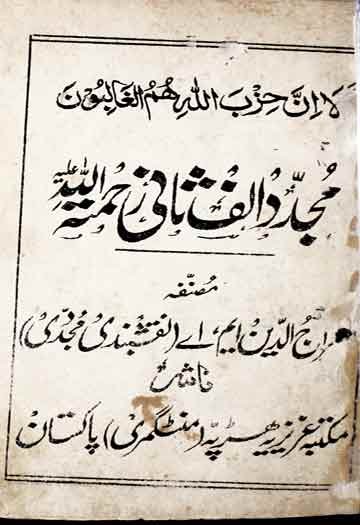 لا اِنَّ حِزْبَ اللّٰهِ هُمُ الغَالِبُوْنَ
مُجدِّد الف ثانی رحمۃ اللہ علیہ
مصنفہ
سراج الدین ایم، اے (نقشبندی مجدّدی)
ناشر
مکتبہ عزیزیہ ہڑپہ (منٹگمری) پاکستان